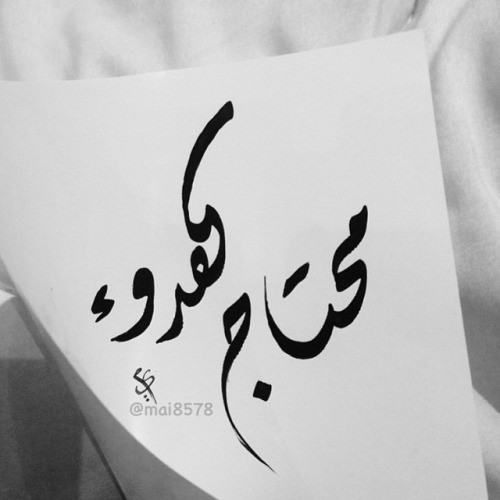 محتاج لهدوء
مي
@mai8578